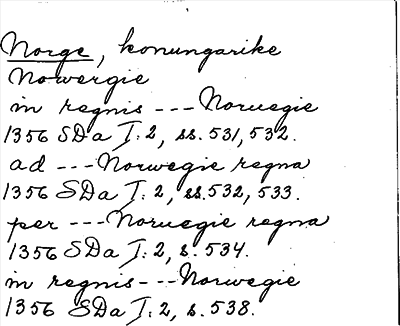 Norge, konungarike
Norvergie
in regnis --- Noruegie
1356 SDa I: 2, ss. 531, 532.
ad --- Norwegie regna
1356 SDa I: 2, ss. 532, 533.
per --- Noruegie regna
1356 SDa I: 2, s. 534.
in regnis --- Norwegie
1356 SDa I: 2, s. 538.